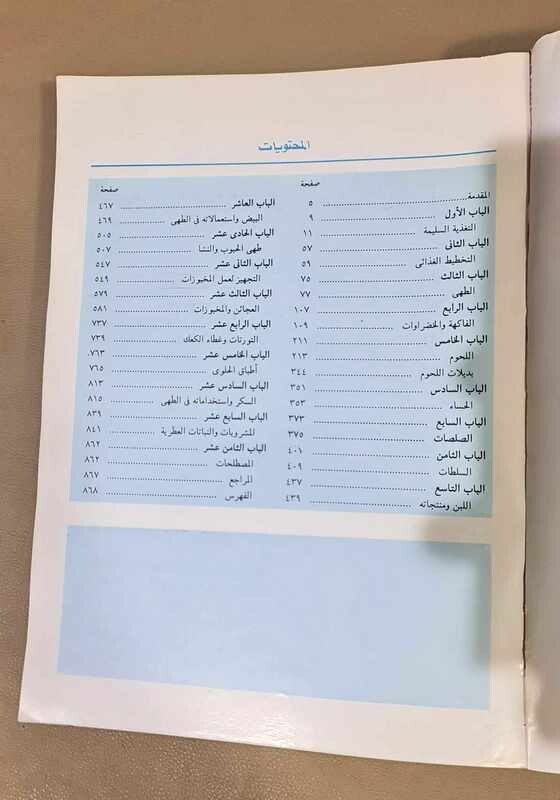 المحتويات
صفحة
المقدمة ........ ٥
الباب الأول ........ ٩
التغذية السليمة ........ ١١
الباب الثانى ........ ٥٧
التخطيط الغذائى ........ ٥٩
الباب الثالث ........ ٧٥
الطهى ........ ٧٧
الباب الرابع ........ ١٠٧
الفاكهة والخضراوات ........ ١٠٩
الباب الخامس ........ ٢١١
اللحوم ........ ٢١٣
بديلات اللحوم ........ ٣٤٤
الباب السادس ........ ٣٥١
الحساء ........ ٣٥٣
الباب السابع ........ ٣٧٣
الصلصات ........ ٣٧٥
الباب الثامن ........ ٤٠١
السلطات ........ ٤٠٩
الباب التاسع ........ ٤٣٧
اللبن ومنتجاته ........ ٤٣٩
صفحة
الباب العاشر ........ ٤٦٧
البيض واستعمالاته فى الطهى ........ ٤٦٩
الباب الحادى عشر ........ ٥٠٥
طهى الحبوب والنشا ........ ٥٠٧
الباب الثانى عشر ........ ٥٤٧
التجهيز لعمل المخبوزات ........ ٥٤٩
الباب الثالث عشر ........ ٥٧٩
العجائن والمخبوزات ........ ٥٨١
الباب الرابع عشر ........ ٧٣٧
التورتات وغطاء الكعك ........ ٧٣٩
الباب الخامس عشر ........ ٧٦٣
أطباق الحلوى ........ ٧٦٥
الباب السادس عشر ........ ٨١٣
السكر واستخداماته فى الطهى ........ ٨١٥
الباب السابع عشر ........ ٨٣٩
المشروبات والنباتات العطرية ........ ٨٤١
الباب الثامن عشر ........ ٨٦٢
المصطلحات ........ ٨٦٢
المراجع ........ ٨٦٧
الفهرس ........ ٨٦٨